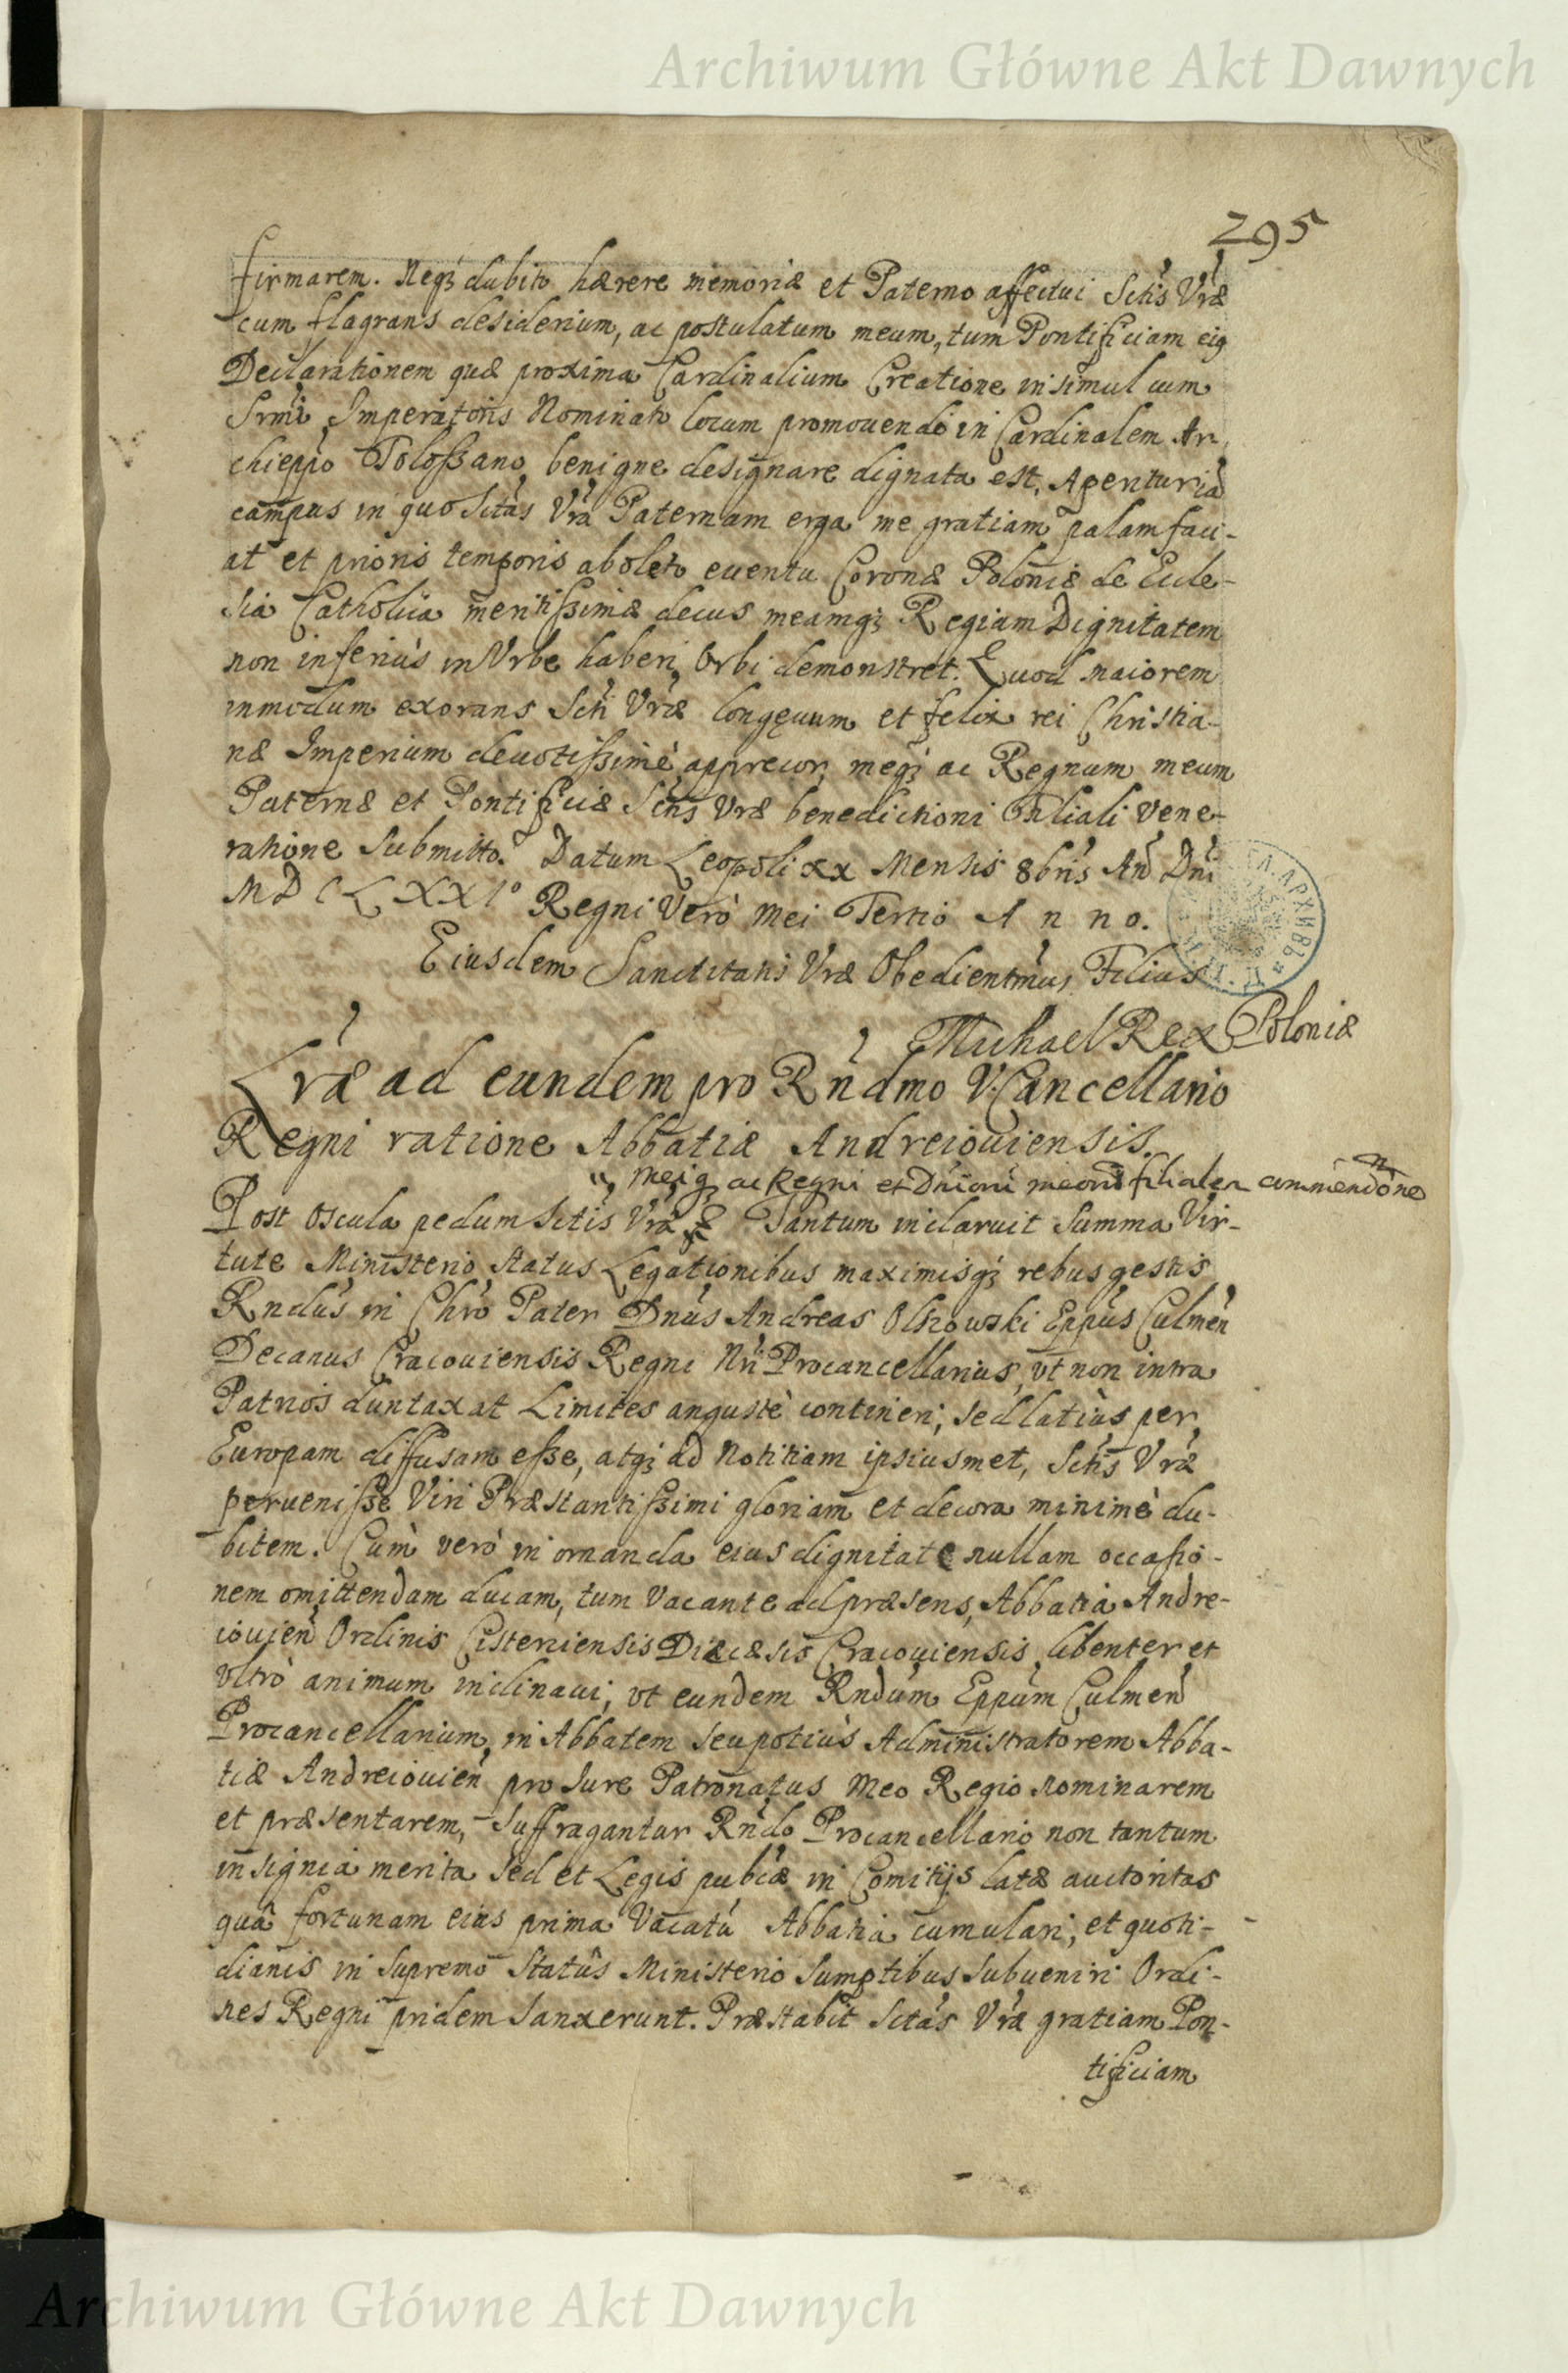 Archiwum Główne Akt Dawnych
295
firmarem. Neqz dubito hærere memoriæ et Paterno affectui Sctis Vræ
cum flagrans desiderium, ac postulatum meum, tum Pontificiam eig
Declarationem quæ proxima Cardinalium Creatione insimul cum
Srmi Imperatoris Nominato locum promouendo in Cardinalem Ar
chieppo Tolossano benigne designare dignata est. Aperitur iã
campus in quo Sctas Vra Paternam erga me gratiam palam faci-
at et prioris temporis aboleto euentu Coronæ Poloniæ de Eccle-
sia Catholica meritissimæ decus meamqz Regiam Dignitatem
non inferius in Vrbe haberi Orbi demonstret. Quod maiorem
inmodum exorans Scti Vræ longęuum et felix rei Christia-
næ Imperium deuotissimè apprecor, meqz ac Regnum meum
Paternæ et Pontificiæ Sctis Vræ benedictioni Filiali vene-
ratione Submitto. Datum Leopoli xx Mensis 8bris An Dni
MDCLXXI° Regni Verò Mei Tertio Anno.
Eiusdem Sanctitatis Vræ Obedientmus Filius
Michael Rex Poloniæ
Lræ ad eundem pro Rndmo V.Cancellario
Regni ratione Abbatiæ Andreiouiensis.
meiqz ac Regni et Dnioru meorũ filialem commendõne
Post oscula pedum Sctis Vræ Tantum inclaruit summa Vir-
tute Ministerio Status Legationibus maximisqz rebus gestis
Rndus in Chro Pater Dnus Andreas Olszowski Eppus Culmen
Decanus Cracouiensis Regni Nri Procancellarius, vt non intra
Patrios duntaxat Limites angustè contineri, sed latiùs per
Europam diffusam esse, atqz ad Notitiam ipsiusmet, Sctis Vræ
peruenisse Viri Præstantissimi gloriam et decora minimè du-
bitem. Cùm verò in ornanda eius dignitate nullam occasio-
nem omittendam ducam, tum Vacante ad præsens, Abbatia Andre-
iouien Ordinis Cisterciensis Diæcæsis Cracouiensis, libenter et
vltrò animum inclinaui, vt eundem Rndum Eppum Culmen
Procancellarium, in Abbatem seu potiùs Administratorem Abba-
tiæ Andreiouien pro Iure Patronatus Meo Regio nominarem
et præsentarem, Suffragantur Rndo Procancellario non tantum
insignia merita sed et Legis publcæ in Comitijs latæ auctoritas
quâ fortunam eius prima Vacatũ Abbatia cumulari, et quoti-
dianis in Supremo Statûs Ministerio Sumptibus Subueniri Ordi-
nes Regni pridem Sanxerunt. Præstabit Sctas Vra gratiam Pon-
tificiam
Archiwum Główne Akt Dawnych